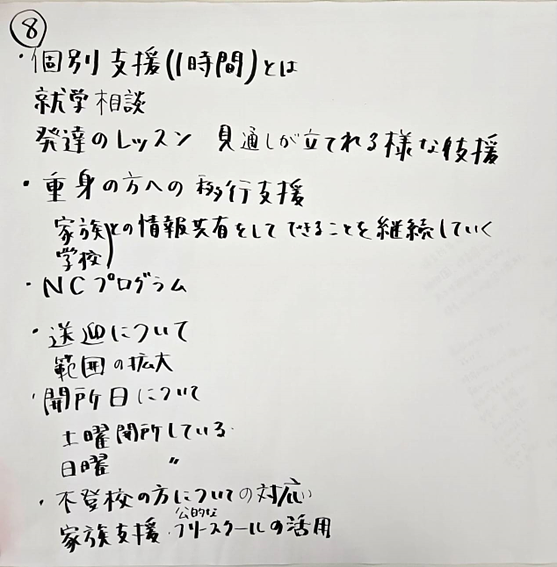 ⑧
・個別支援(1時間)とは
就学相談
発達のレッスン 見通しが立てれる様な支援
・重身の方への移行支援
家族
学校 との情報共有をしてできることを継続していく
・NCプログラム
・送迎について
範囲の拡大
・開所日について
土曜開所している
日曜 〃
・不登校の方についての対応
家族支援・公的なフリースクールの活用